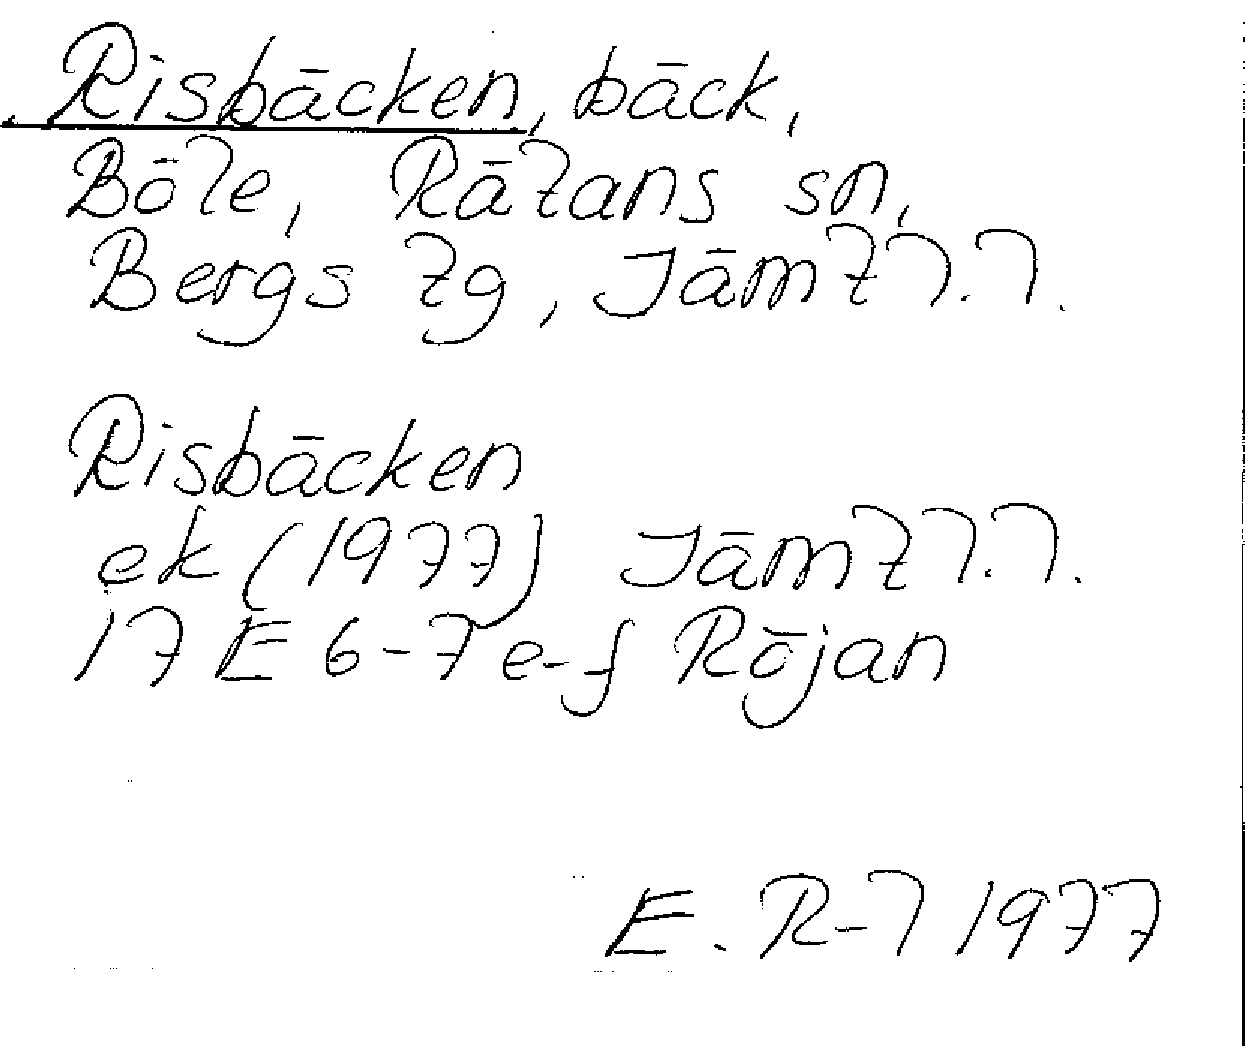 Risbäcken, bäck,
Böle, Rätans sn,
Bergs tg, Jämtl.l.
Risbäcken
ek (1977) Jämtl.l.
17 E 6-7 e-f Röjan
E. R-l 1977